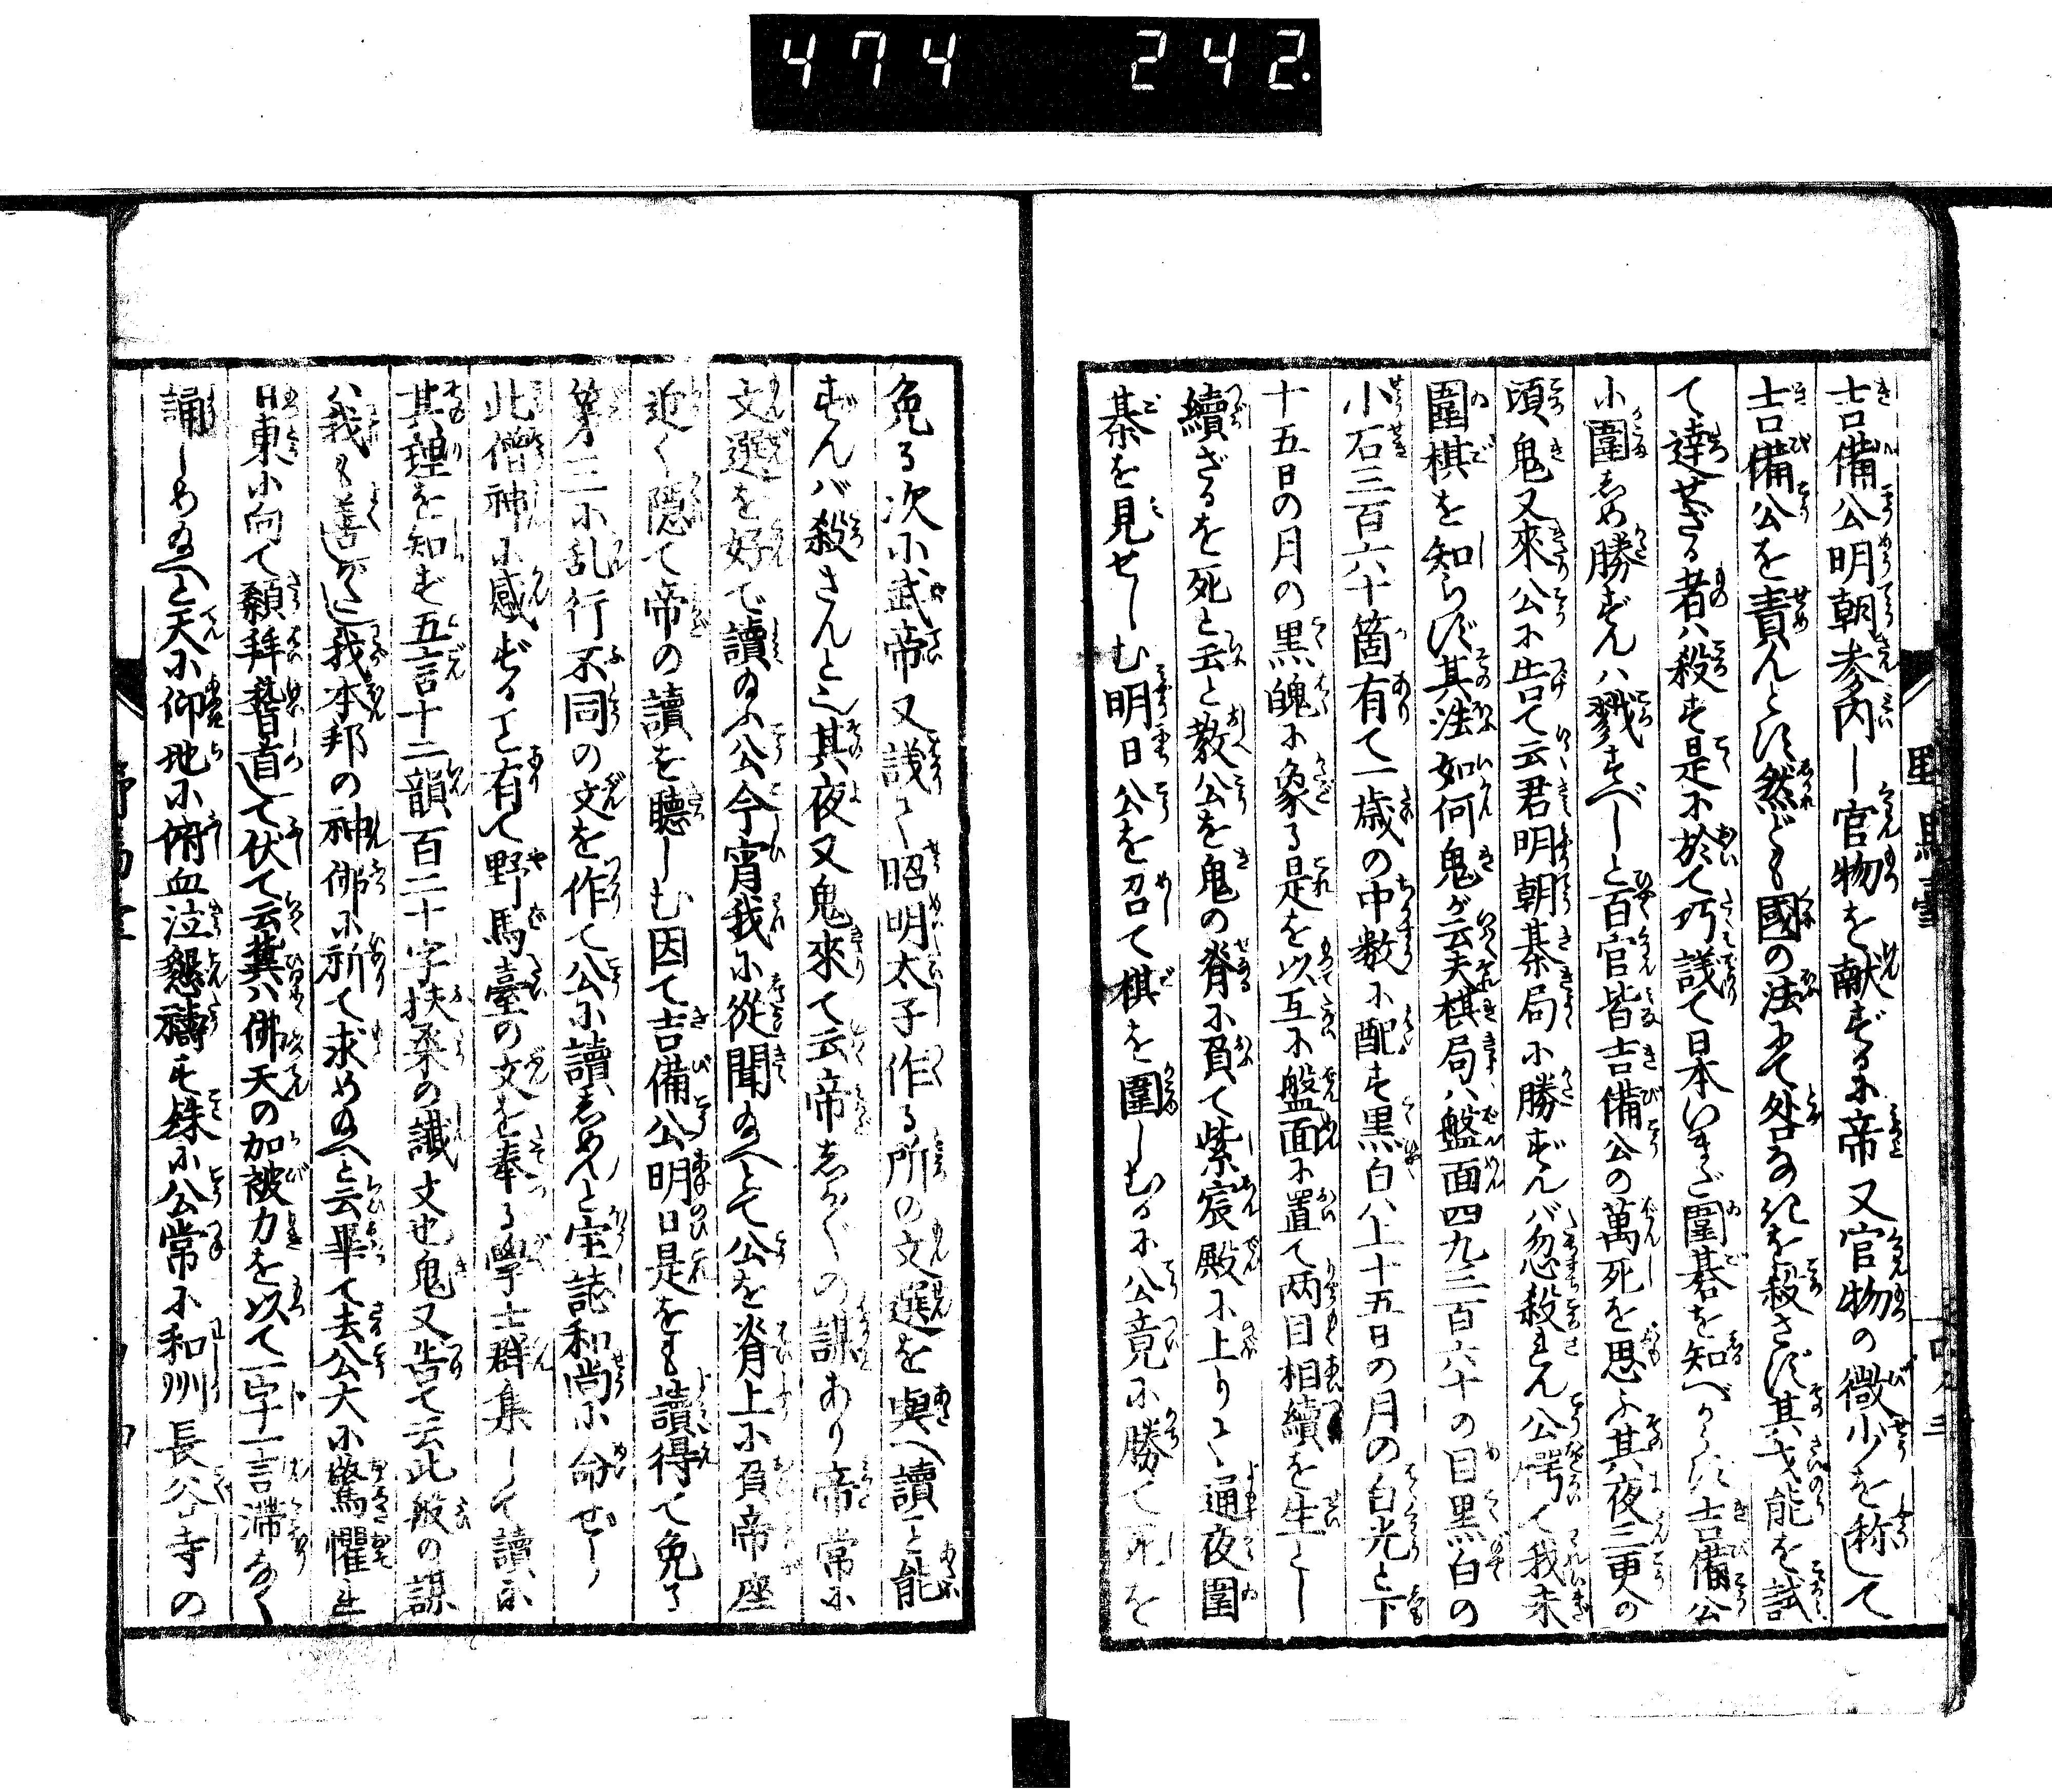 474 242.
吉備公明朝参内し官物を献ずるに帝又官物の微少を称して
吉備公を責んとす然ども國の法にて咎なきを殺さず其才能を試
て達せざる者ハ殺す是に於て巧議て日本いまだ圍碁を知べからず吉備公
に圍しめ勝ずんハ戮すべしと百官皆吉備公の萬死を思ふ其夜三更の
頭鬼又來公に告て云君明朝棊局に勝ずんバ忽殺されん公愕て我未
圍棋を知らず其法如何鬼が云夫棋局ハ盤面四九三百六十の目黒白の
小石三百六十箇有て一歳の中数に配す黒白ハ上十五日の月の白光と下
十五日の月の黒魄に象る是を以互に盤面に置て两目相續を生とし
續ざるを死と云と教公を鬼の脊に負て紫宸殿に上りて通夜圍
棊を見せしむ明日公を召て棋を圍しむるに公竟に勝て死を
免る次に武帝又議て昭明太子作る所の文選を與へ讀こと能
ずんバ殺さんとし其夜又鬼來て云帝しか〲の謀あり帝常に
文選を好で讀給ふ公今宵我に從聞給へとて公を脊上に負帝座
近く隠て帝の讀を聴しむ因て吉備公明日是をも讀得て免る
第三に乱行不同の文を作て公に讀しめんと宝誌和尚に命ぜし
此僧神に感ずること有て野馬臺の文を奉る學士群集して讀に
其理を知ず五言十二韻百二十字扶桑の讖文也鬼又告て云此般の謀
ハ我も善がたし我本邦の神佛に祈て求め給へと云畢て去公大に驚懼れ
日東に向て顙拜稽首して伏て云冀ハ佛天の加被力を以て一字一言滞なく
誦しめ給へと天に仰地に俯血泣懇禱す殊に公常に和州長谷寺の